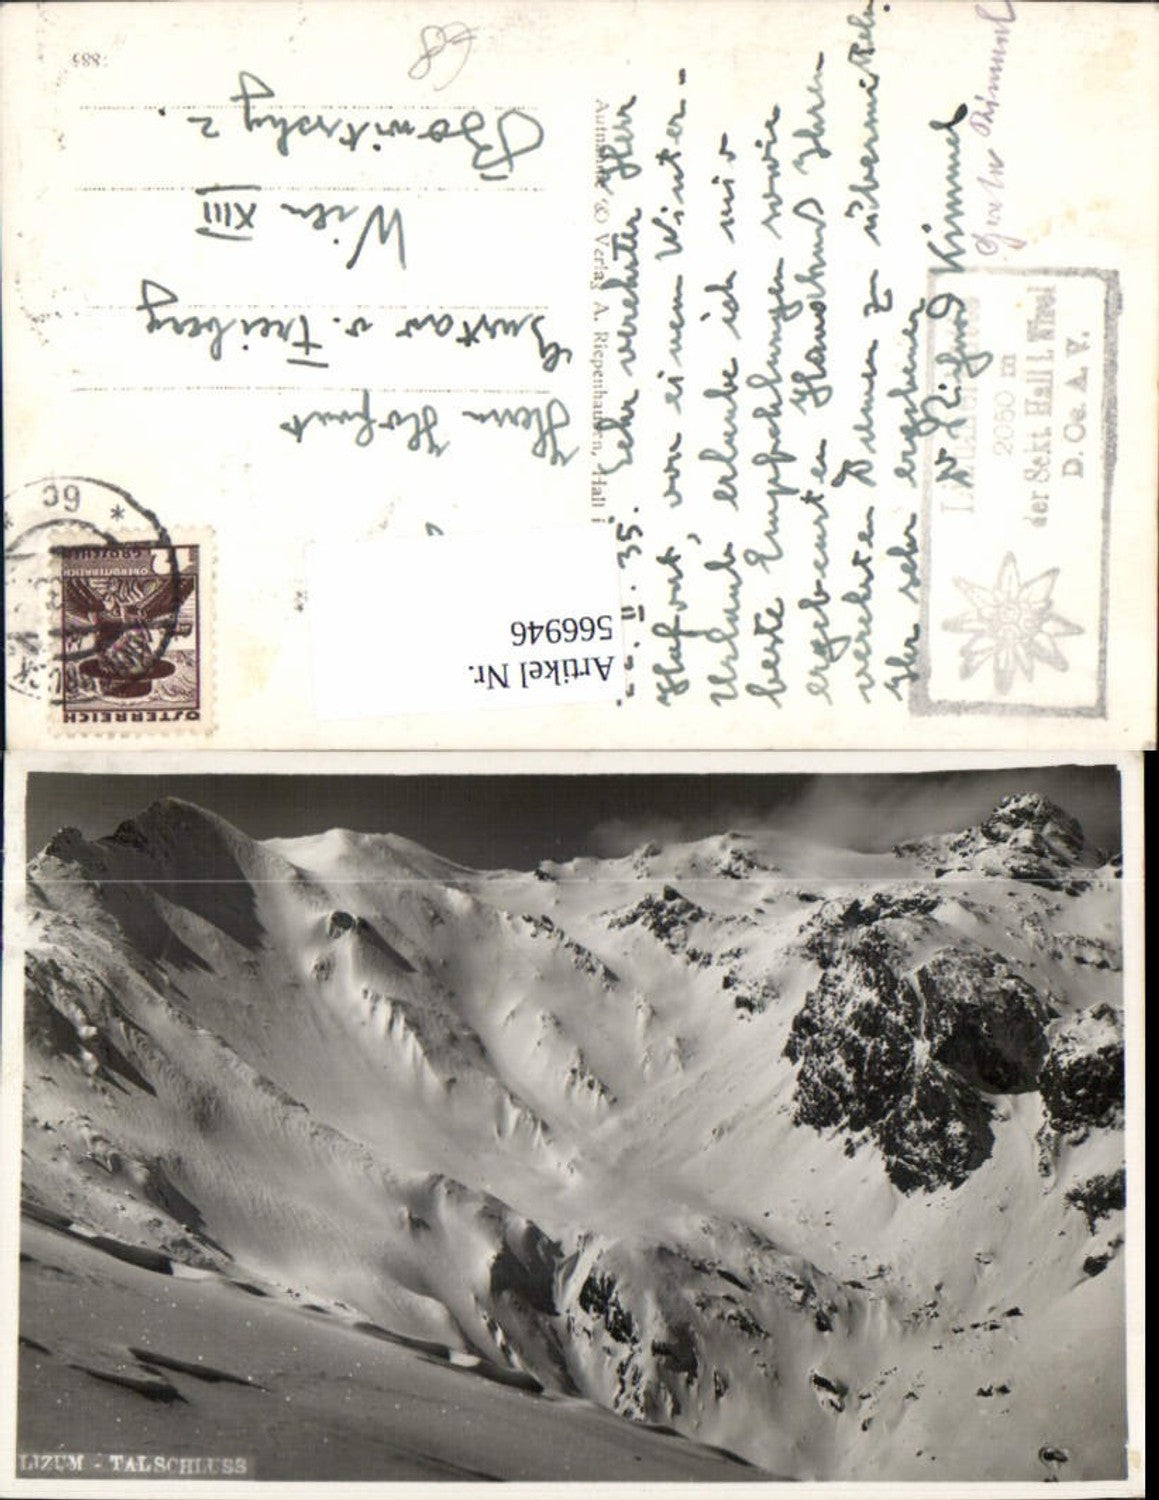 Sehr verehrter Herr
Hofrat, von einem Winter-
Urlaub erlaube ich mir
beste Empfehlungen sowie
ergebenste Handkuss Ihren
verehrten Damen zu übermitteln.
Ihr sehr ergebener
Dr Siegfried Kimmel
2050 m
der Sekt. Hall i. Tirol
D. Oe. A. V.
Aufnahme © Verlag A. Riepenhausen, Hall i
Herrn Hofrat
Gustav v. Freiberg
Wien XIII
2.
Artikel Nr.
566946
ÖSTERREICH
OBERÖSTERREICH
GROSCHEN
LIZUM - TALSCHLUSS